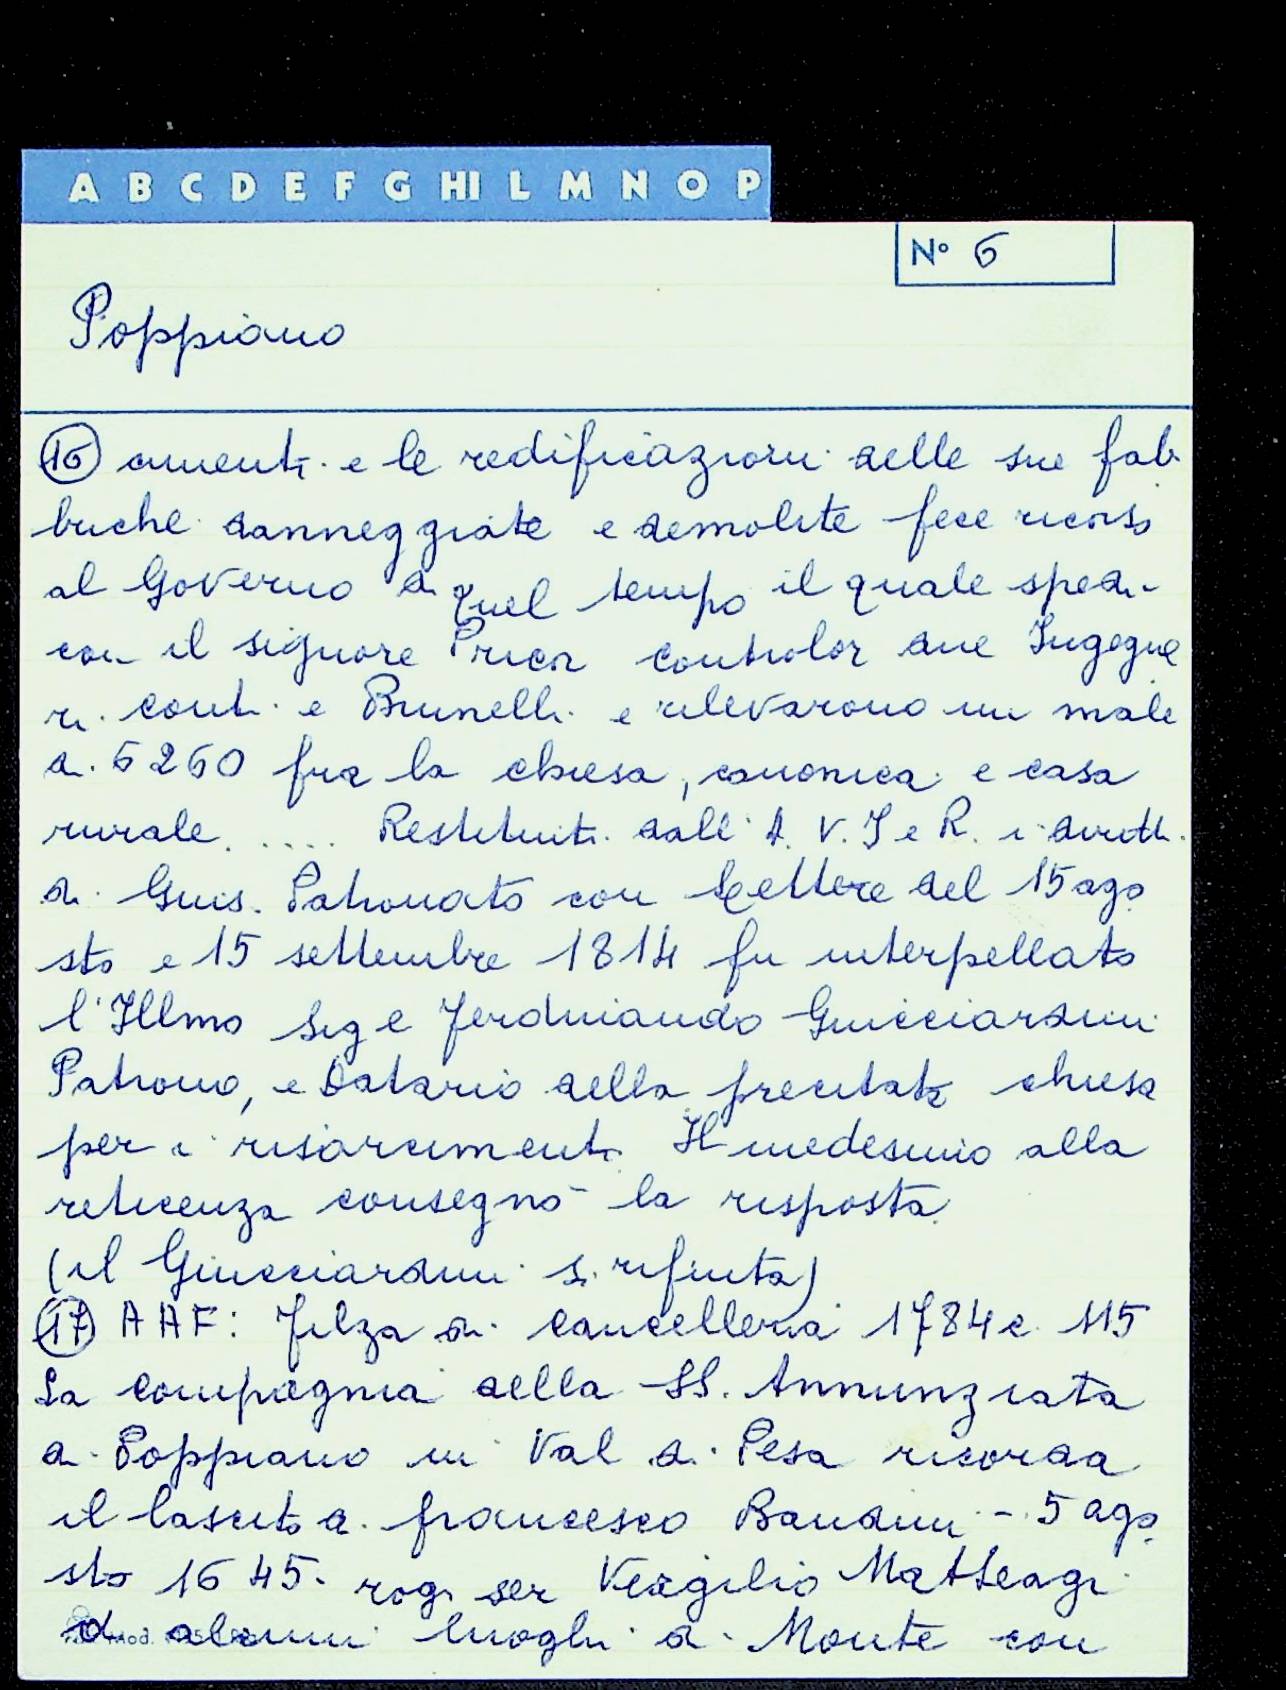 A B C D E F G HI L M N O P
N° 6
Poppiano
(16) amenti e le redificazioni delle sue fab
briche danneggiate e demolite fece ricorso
al Governo di quel tempo il quale spedi
con il signore Prior controlor due Ingegne
ri conti e Brunelli e rilevarono un male
di 6260 fra la chiesa, canonica e casa
rurale ..... Restituiti dall'A. V. I e R. i diritti
di Guis. Patronato con Lettere del 15 ago
sto e 15 settembre 1814 fu interpellato
l'Illmo Sig e Ferdinando Guicciardini
Patrono, e Datario della precitata chiesa
per i risarcimenti. Il medesimo alla
reticenza consegnò la risposta
(il Guicciardini si rifiuta)
(17) AAF: Filza di cancelleria 1784 c. 115
La compagnia della SS. Annunziata
a Poppiano in Val di Pesa ricorda
il lascito di francesco Bandini - 5 ago
sto 1645. rog. ser Vergilio Matteagi
di alcuni luoghi di Monte con